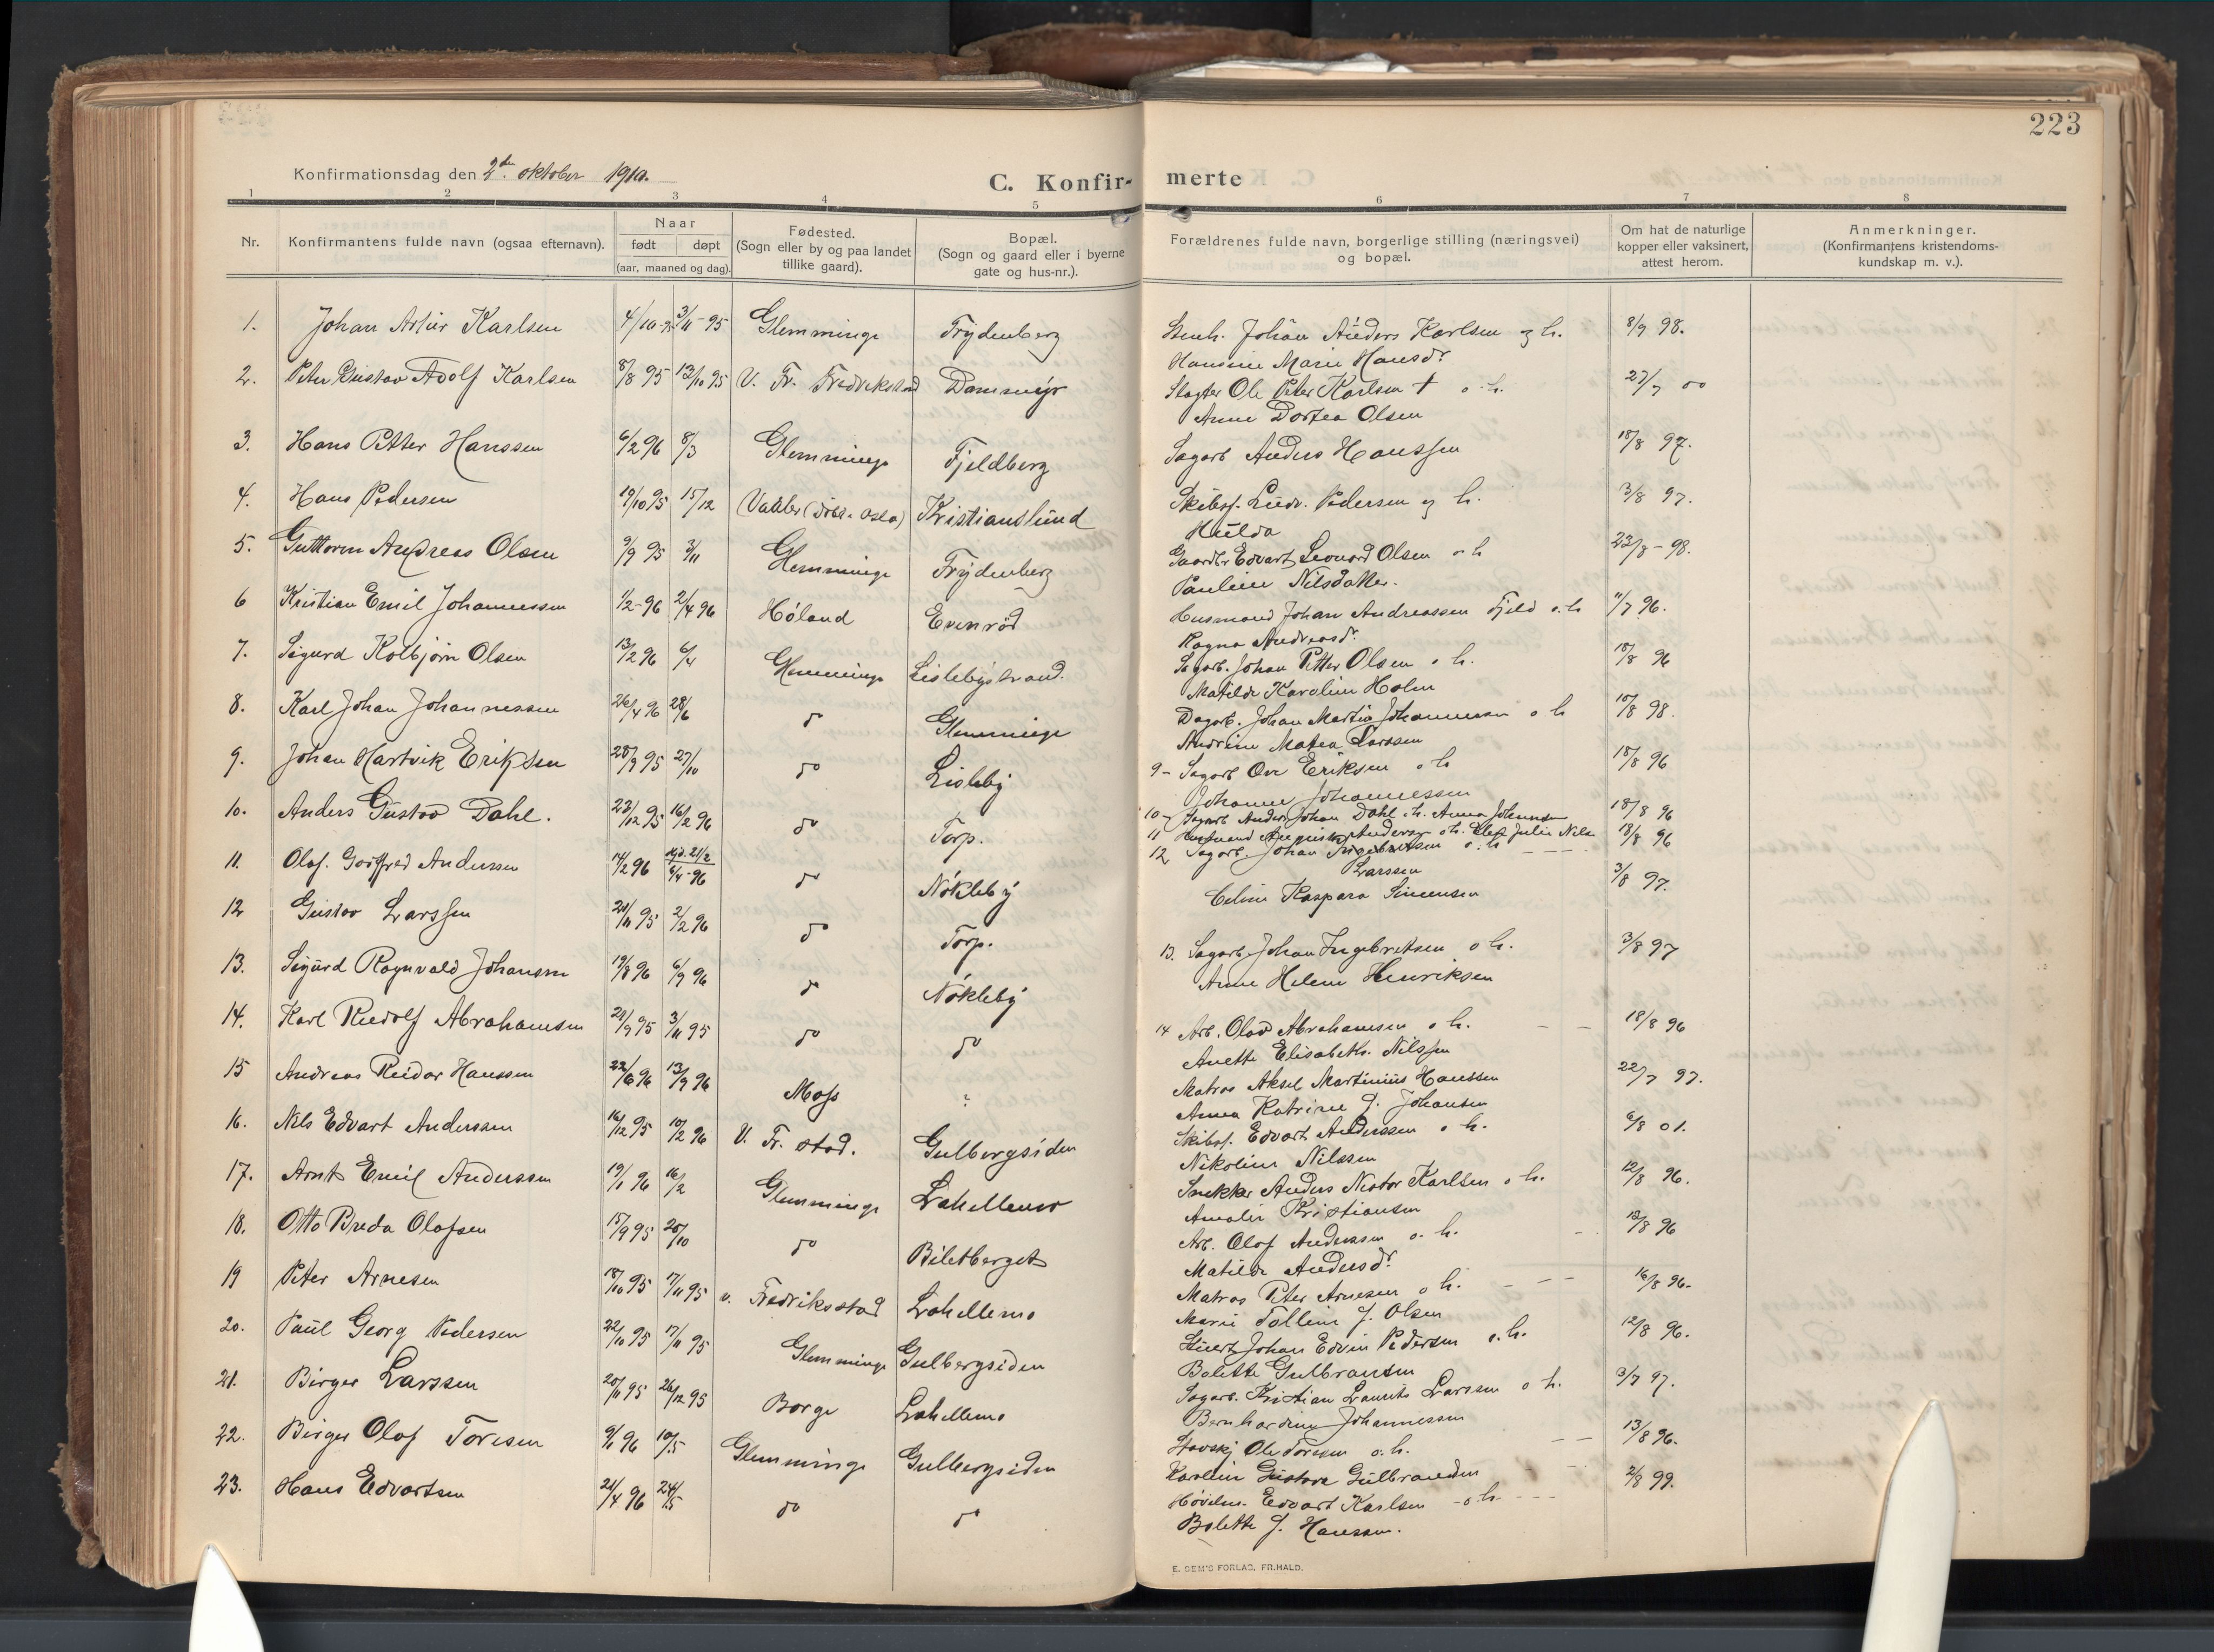 223
Konfirmationsdag den 2den oktober 1910.
C. Konfir- merte
1 2 3 4 5 6 7 8
Nr.
Konfirmantens fulde navn (ogsaa efternavn).
Naar
født døpt
(aar, maaned og dag).
Fødested.
(Sogn eller by og paa landet
tillike gaard).
Bopæl.
(Sogn og gaard eller i byerne
gate og hus-nr.).
Forældrenes fulde navn, borgerlige stilling (næringsvei)
og bopæl.
Om hat de naturlige
kopper eller vaksinert,
attest herom.
Anmerkninger.
(Konfirmantens kristendoms-
kundskap m. v.).
1. Johan Artur Karlsen 4/10-95 3/11-95 Glemminge Frydenberg
2. Peter Gustav Adolf Karlsen 8/8 95 13/10 95 V. Fr. Fredrikstad Dammyr
3. Hans Petter Hanssen 6/2 96 8/3 Glemminge Fjeldberg
4. Hans Pedersen 19/10 95 15/12 Vaaler Kristianslund
5. Guttorm Andreas Olsen 9/9 95 3/11 Glemminge Frydenberg
6 Kristian Emil Johannessen 1/2-96 2/4 96 Høland Evenrød
7. Sigurd Kolbjørn Olsen 13/2 96 6/4 Glemminge Lislebystrand.
8. Karl Johan Johannessen 26/4 96 28/6 do Glemminge
9. Johan Hartvik Eriksen 28/9 95 27/10 do Lisleby
10. Anders Gustav Dahl. 23/12 95 16/2 96 do Torp.
11. Olaf Godtfred Andersen 14/2 96 Hjd. 21/2 6/4-96 do Nøkleby
12 Gustav Larssen 21/11 95 2/2 96 do Torp.
13. Sigurd Ragnvald Johansen 19/8 96 6/9 96 do Nøkleby
14. Karl Rudolf Abrahamsen 21/9 95 3/11 95 do do
15 Andreas Reidar Hanssen 22/6 96 13/9 96 Moss
16. Nils Edvart Anderssen 16/12 95 10/2 96 V. Fr. stad. Gulbergsiden
17. Arnt Emil Anderssen 19/1 96 16/2 Glemminge Lahellemo
18. Otto Breda Olafsen 15/9 95 20/10 do Biletberget
19 Peter Arnesen 18/10 95 17/11 95 v. Fredriksstad Lahellemo
20. Paul Georg Pedersen 22/10 95 17/11 95 Glemminge Gulbergsiden
21. Birger Larssen 20/11 95 26/12 95 Borge Lahellemo
22. Birger Olaf Toresen 9/1 96 10/5 Glemminge Gulbergsiden
23. Hans Edvartsen 21/4 96 24/5 do do
Stenh. Johan Anders Karlsen og h. 8/9 98.
Hansine Marie Hansdr
Slagter Ole Peter Karlsen † o. h. 27/7 00
Anne Dortea Olsen
Sagarb Anders Hanssen 18/8 97.
Skibsf. Ludv. Pedersen og h. 3/8 97.
Hulda
Gaardbr Edvart Leonard Olsen o h 23/8-98.
Pauline Nilsdatter.
Husmand Johan Andreassen Fjeld o. h 11/7 96.
Ragna Andreasdr.
Sagarb. Johan Petter Olsen o h. 18/8 96
Matilde Karoline Holm
Dagarb. Johan Martin Johannessen o h 10/8 98.
Andrine Matea Larssen
9- Sagarb Ove Eriksen o h 18/8 96
Johanne Johannessen
10- Sagarb Anders Johan Dahl o. h. Anna Johannes 18/8 96
11 Husmand August Anderssen o h. Julie Nils 18/8 96
12 Sagarb. Johan Ingebretsen o. h
Larssen 3/8 97.
Celine Kaspara Simensen
13. Sagarb. Johan Ingebretsen o h. 3/8 97
Anne Helene Henriksen
14 Arb. Olav Abrahamsen o h. 18/8 96
Anette Elisabeth Nilssen
Matros Aksel Martinius Hanssen 22/7 97.
Anna Katrine J. Johansen
Skibsf. Edvart Anderssen o h. 6/8 01.
Nikoline Nilssen
Snekker Anders Nestor Karlsen o h. 12/8 96.
Amalie Kristiansen
Arb. Olaf Anderssen o. h. 12/8 96
Matilde Andersdr.
Matros Peter Arnesen o h. 16/8 96.
Marie Tolline J. Olsen
Stuert Johan Edvin Pedersen o. h. 12/8 96.
Bolette Gulbransen
Sagarb. Kristian Laurits Larssen o h. 3/7 97.
Bernhardine Johannessen
Ole Toresen o. h. 13/8 96.
Karoline Gustava Gulbrandsen 2/8 99.
Høvlem. Edvart Karlsen o h
Bolette J. Hanssen.
E. SEM'S FORLAG, FR.HALD.